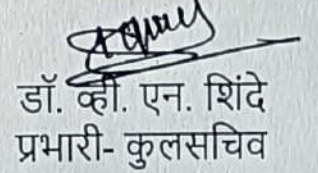 डॉ. व्ही. एन. शिंदे
प्रभारी- कुलसचिव